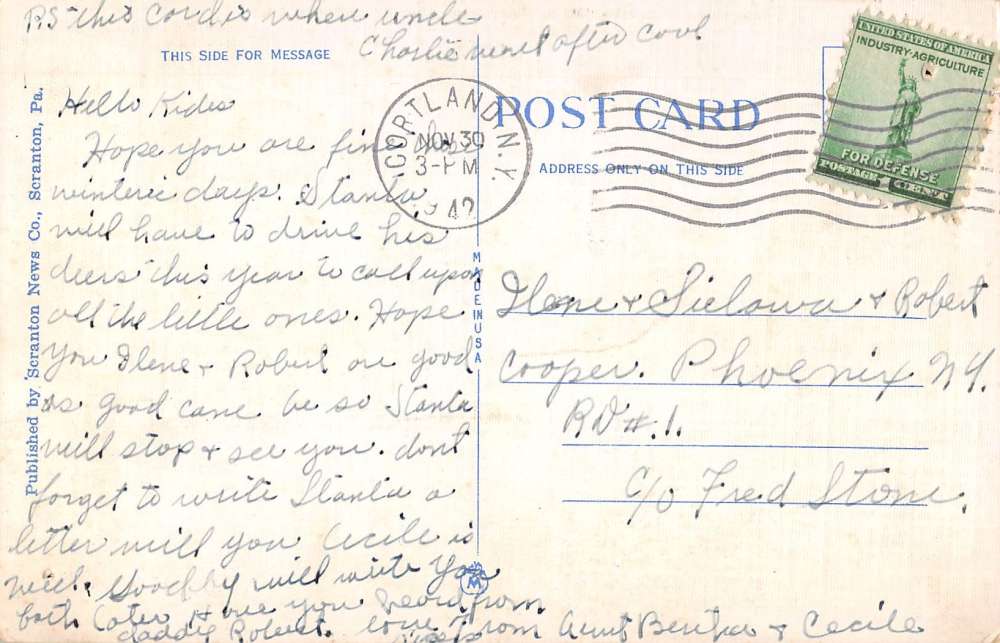 P.S this card is where uncle
Charlie went after cool
THIS SIDE FOR MESSAGE
Hello Kides
Hope you are fine these
winteric days. Stanta
will have to drive his
deers this year to call upon
all the little ones. Hope
you Ilene + Robert are good
as good cane be so Stanta
will stop + see you. dont
forget to write Stanta a
letter will you Cecile is
well. Goodby will write you
both later Have you heard from
daddy Robert. love from Aunt Bertha + Cecile
Published by Scranton News Co., Scranton, Pa.
MADE IN USA
CORTLAND, N.Y.
NOV 30
3-PM
1942
POST CARD
ADDRESS ONLY ON THIS SIDE
UNITED STATES OF AMERICA
INDUSTRY-AGRICULTURE
FOR DEFENSE
POSTAGE 1 CENT
Ilene + Sielowa + Robert
Cooper. Phoenix NY.
RD#.1.
c/o Fred Stone.